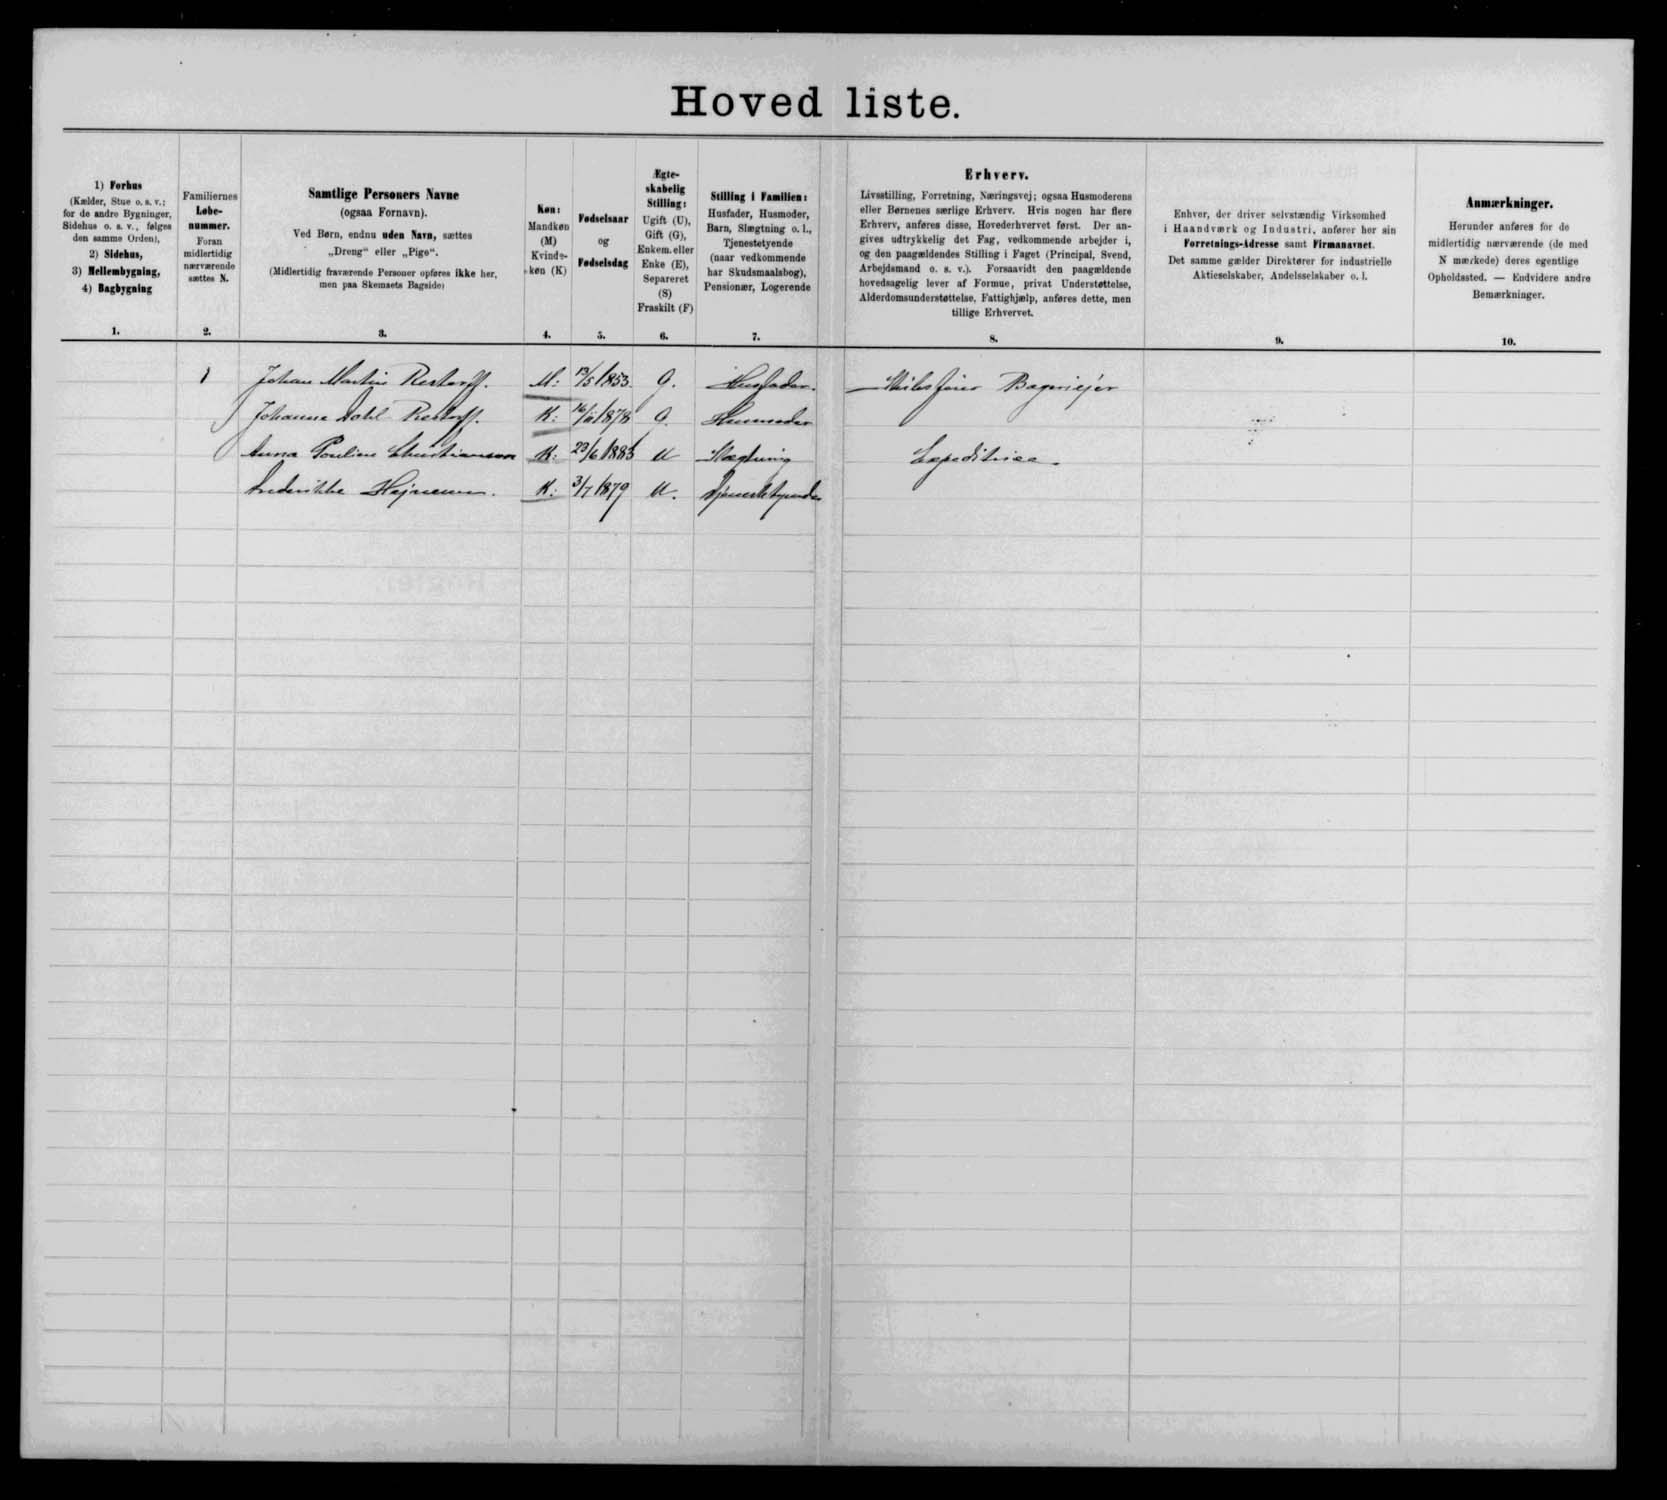 Hoved liste.
1) Forhus
(Kælder, Stue o. s. v.;
for de andre Bygninger,
Sidehus o. s. v., følges
den samme Orden),
2) Sidehus,
3) Mellembygning,
4) Bagbygning
1.
Familiernes
Løbe-
nummer.
Foran
midlertidig
nærværende
sættes N.
2.
Samtlige Personers Navne
(ogsaa Fornavn).
Ved Børn, endnu uden Navn, sættes
„Dreng“ eller „Pige“.
(Midlertidig fraværende Personer opføres ikke her,
men paa Skemaets Bagside)
3.
Køn:
Mandkøn
(M)
Kvinde-
køn (K)
4.
Fødselsaar
og
Fødselsdag
5.
Ægte-
skabelig
Stilling:
Ugift (U),
Gift (G),
Enkem. eller
Enke (E),
Separeret
(S)
Fraskilt (F)
6.
Stilling i Familien:
Husfader, Husmoder,
Barn, Slægtning o. l.,
Tjenestetyende
(naar vedkommende
har Skudsmaalsbog),
Pensionær, Logerende
7.
Erhverv.
Livsstilling, Forretning, Næringsvej; ogsaa Husmoderens
eller Børnenes særlige Erhverv. Hvis nogen har flere
Erhverv, anføres disse, Hovederhvervet først. Der an-
gives udtrykkelig det Fag, vedkommende arbejder i,
og den paagældendes Stilling i Faget (Principal, Svend,
Arbejdsmand o. s. v.). Forsaavidt den paagældende
hovedsagelig lever af Formue, privat Understøttelse,
Alderdomsunderstøttelse, Fattighjælp, anføres dette, men
tillige Erhvervet.
8.
Enhver, der driver selvstændig Virksomhed
i Haandværk og Industri, anfører her sin
Forretnings-Adresse samt Firmanavnet.
Det samme gælder Direktører for industrielle
Aktieselskaber, Andelsselskaber o. l.
9.
Anmærkninger.
Herunder anføres for de
midlertidig nærværende (de med
N mærkede) deres egentlige
Opholdssted. — Endvidere andre
Bemærkninger.
10.
1 Johan Martin Restorff. M: 13/5 1853 G. Husfader. Bageriejer
Johanne Dohl Restorff. K: 1878 G. Husmoder
Anna Pouline Christiansen K: 23/6 1883 U Slægtning Expeditrice.
Frederikke K: 3/7 1879 U. Tjenestetyende